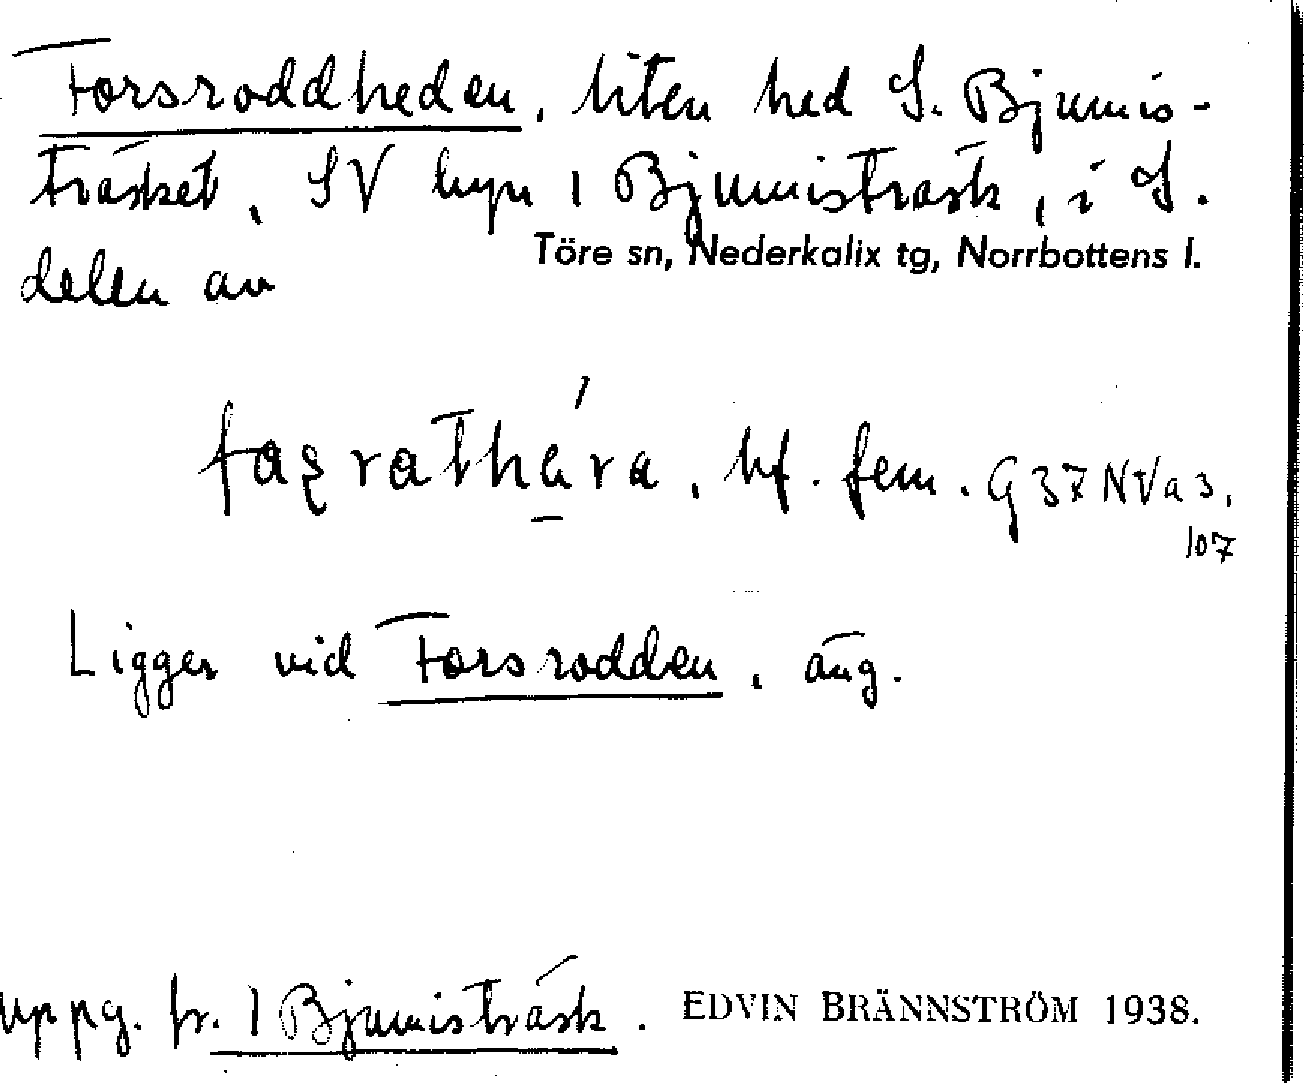 Forsroddheden, liten hed S. Bjumis-
träsket, SV byn 1 Bjumisträsk, i S.
Töre sn, Nederkalix tg, Norrbottens l.
delen av
bf. fem. G 37 NVa3,
107
Ligger vid Forsrodden, äng.
uppg. fr. 1 Bjumisträsk. EDVIN BRÄNNSTRÖM 1938.